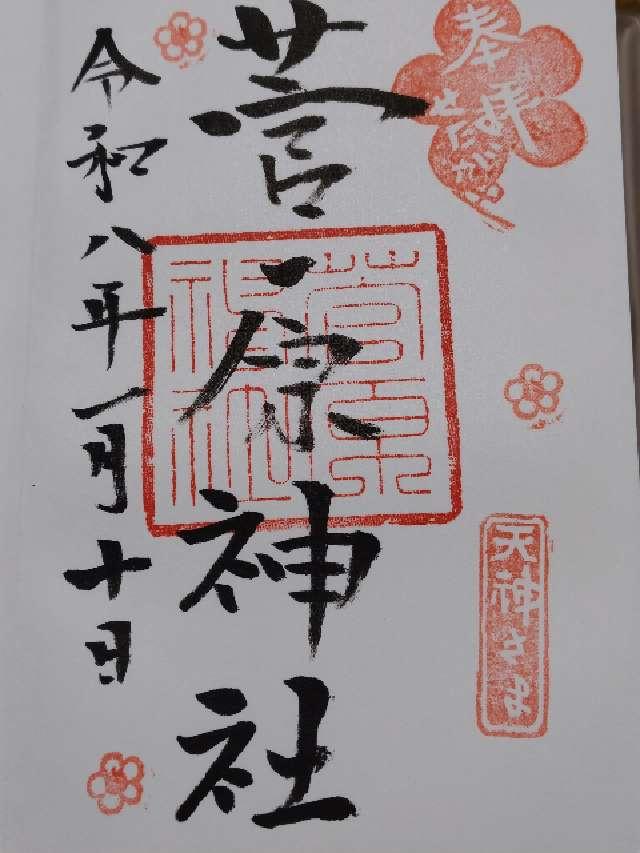 奉拝
せたがや
天神さま
菅原神社
菅原神社
令和八年一月十日